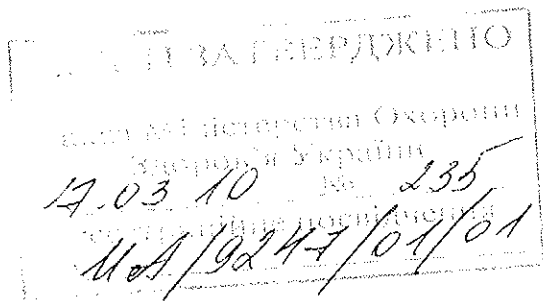 ЗАТВЕРДЖЕНО
Міністерства Охорони
Здоров'я України
17.03 10 № 235
реєстраційне посвідчення
UA/9247/01/01